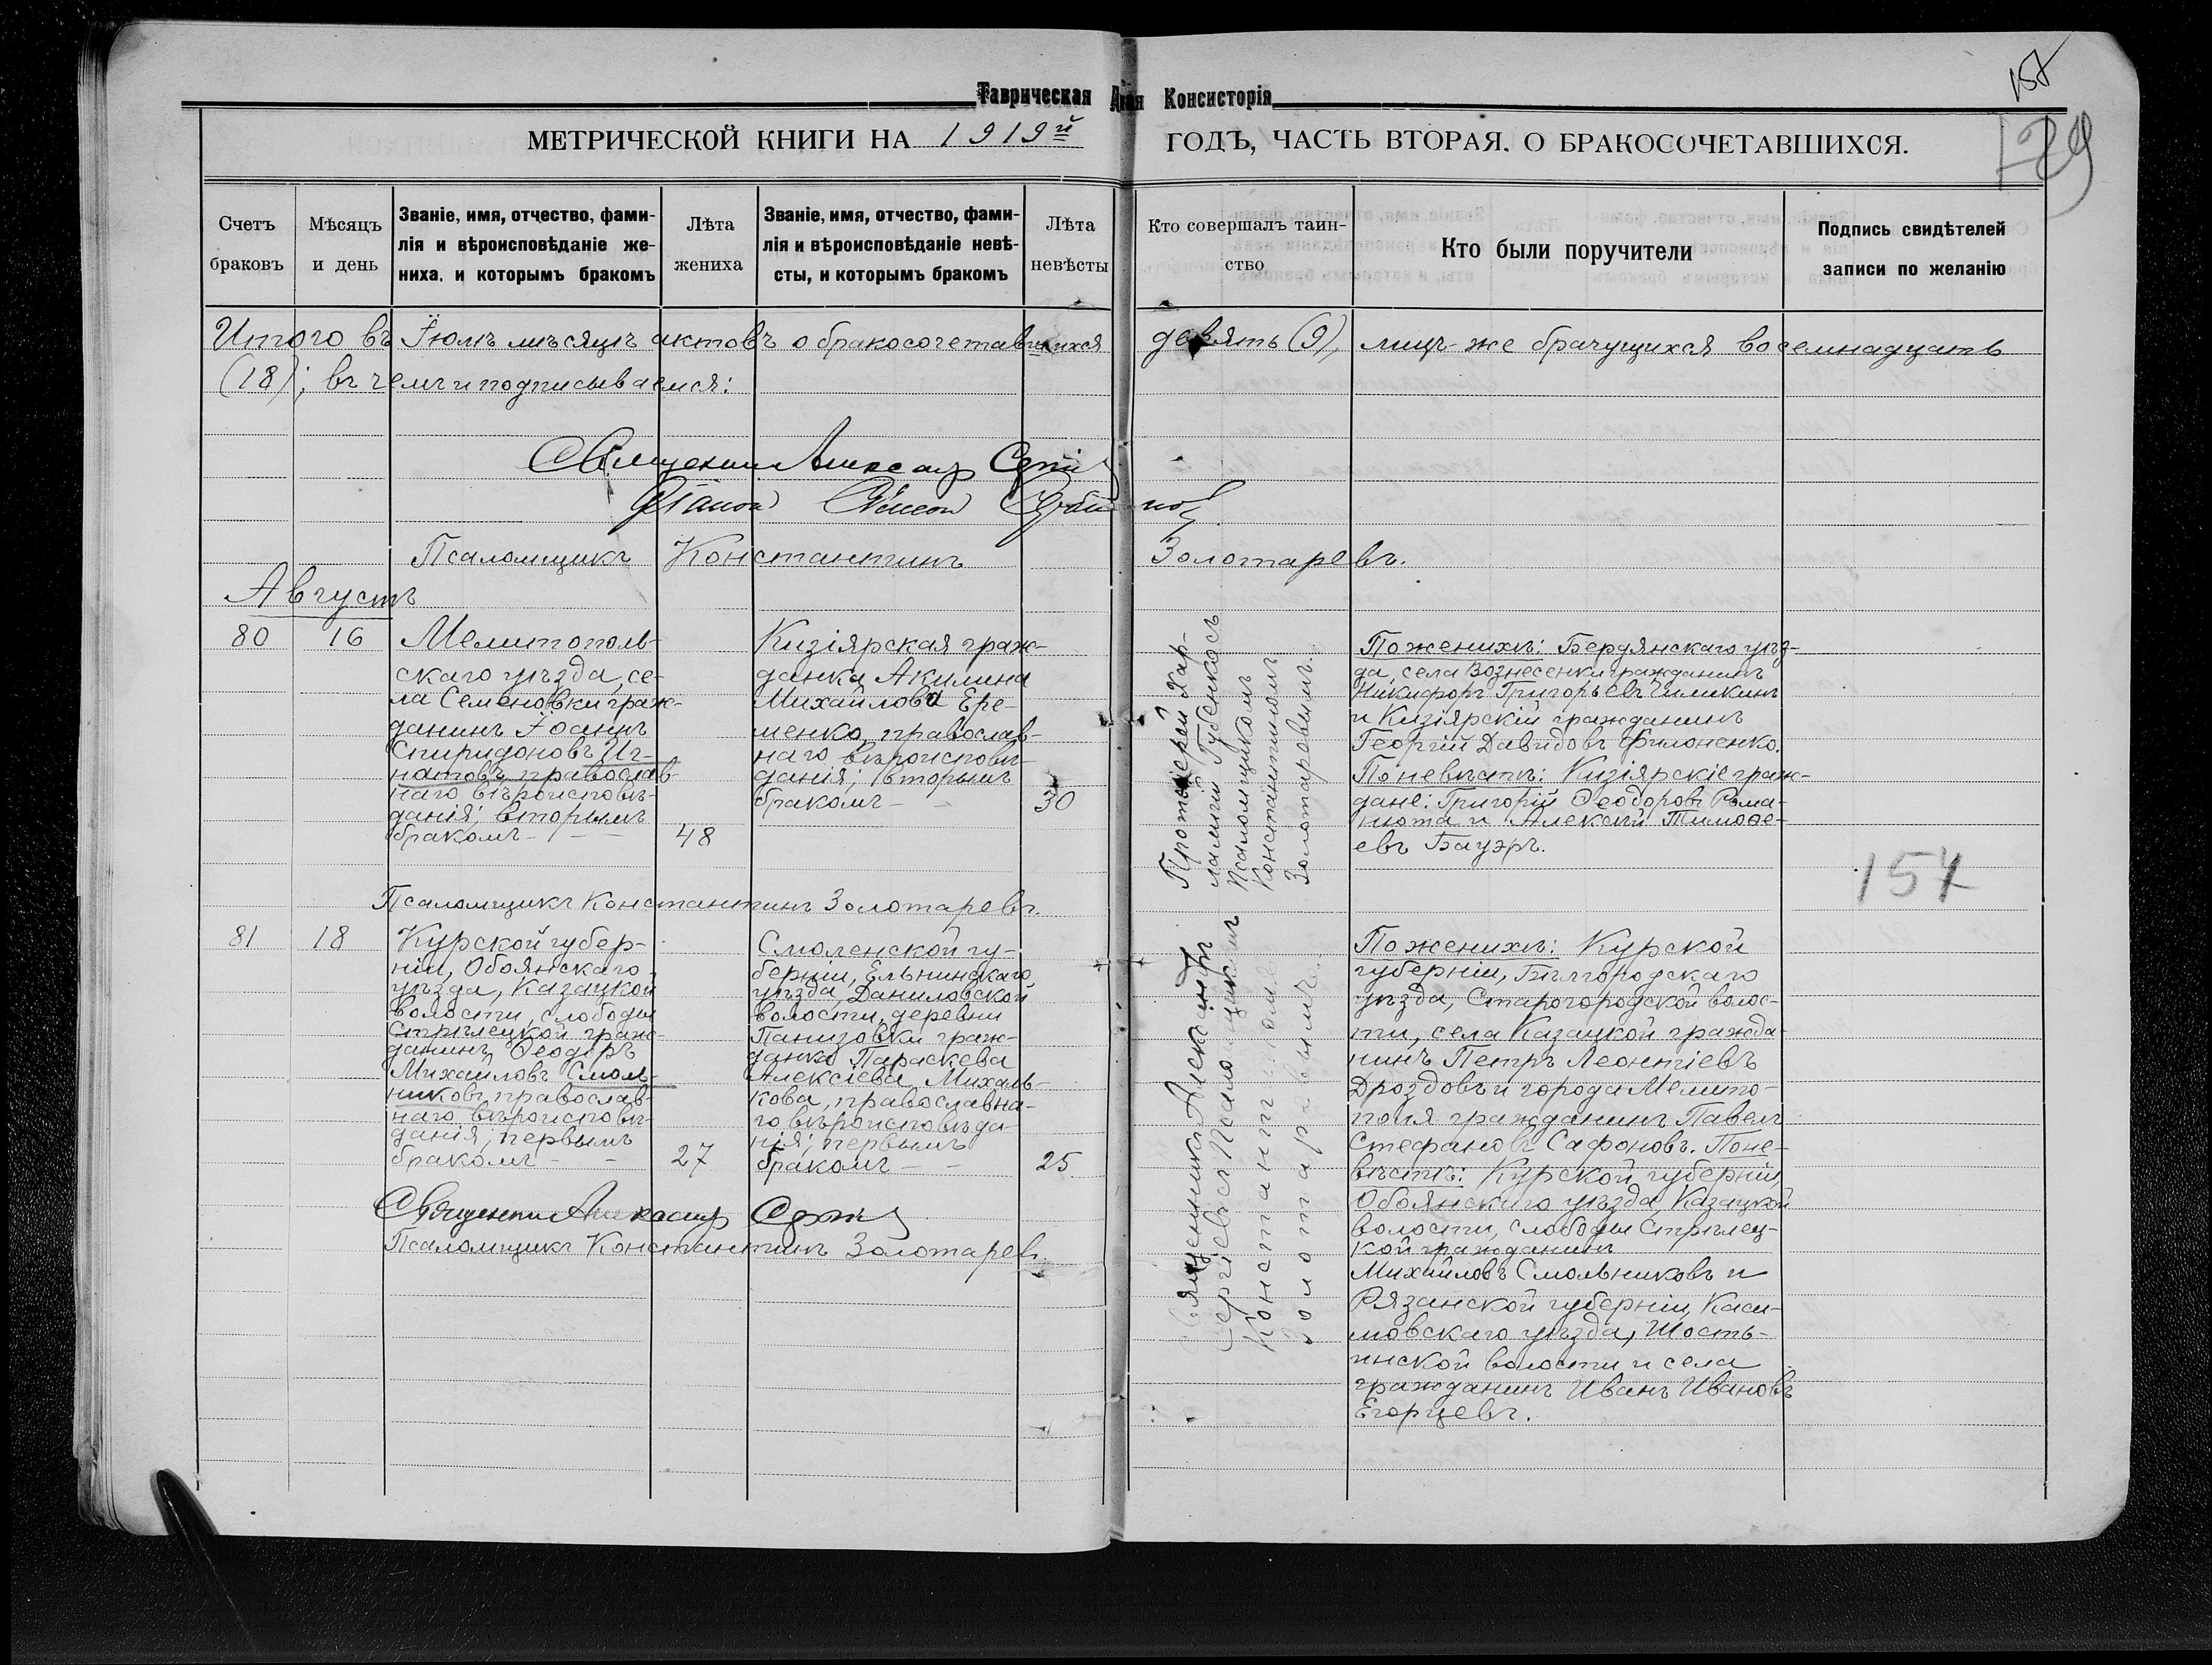 Таврическая Консисторія
157
МЕТРИЧЕСКОЙ КНИГИ НА 1919й ГОДЪ, ЧАСТЬ ВТОРАЯ. О БРАКОСОЧЕТАВШИХСЯ.
Счетъ
браковъ
Мѣсяцъ
и день
Званіе, имя, отчество, фами-
лія и вѣроисповѣданіе же-
ниха. и которымъ бракомъ
Лѣта
жениха
Званіе, имя, отчество, фами-
лія и вѣроисповѣданіе невѣ-
сты, и которымъ бракомъ
Лѣта
невѣсты
Кто совершалъ таин-
ство
Кто были поручители
Подпись свидѣтелей
записи по желанію
Итого въ Іюлѣ мѣсяцѣ актовъ о бракосочетавшихся девять (9), лицъ-же брачущихся восемнадцать
(18); въ чемъ и подписываемся:
Псаломщикъ Константинъ Золотаревъ.
Августъ
80
16
Мелитополь-
скаго уѣзда, се-
ла Семеновки граж-
данинъ Іоаннъ
Спиридоновъ Иг-
натовъ православ-
наго вѣроисповѣ-
данія; вторымъ
бракомъ - - -
48
Кизіярская граж-
данка Акилина
Михайлова Ере-
менко, православ-
наго вѣроисповѣ-
данія; вторымъ
бракомъ - -
30
Протоіерей Хар-
лампій Губенкосъ
Псаломщикомъ
Константиномъ
Золотаревымъ.
По женихѣ: Бердянскаго уѣз-
да, села Вознесенки гражданинъ
Никифоръ Григорьевъ Чимикинъ
и Кизіярскій гражданинъ
Георгій Давидовъ Филоненко.
По невѣстѣ: Кизіярскіе граж-
дане: Григорій Ѳеодоровъ Рома-
нюта и Алексѣй Тимоѳе-
евъ Бауэръ.
157
Псаломщикъ Константинъ Золотаревъ.
81
18
Курской губер-
ніи, Обоянскаго
уѣзда, Казацкой
волости, слободы
Стрѣлецкой граж-
данинъ Ѳеодоръ
Михайловъ Смоль-
никовъ, православ-
наго вѣроисповѣ-
данія; первымъ
бракомъ - -
27
Смоленской гу-
берніи, Ельнинскаго
уѣзда, Даниловской
волости, деревни
Панизовки граж-
данка Параскева
Алексіева Михаль-
кова, православна-
го вѣроисповѣда-
нія; первымъ
бракомъ - -
25
Священникъ Александръ
Сергіевъ съ Псаломщикомъ
Константиномъ
Золотаревымъ.
По женихѣ: Курской
губерніи, Бѣлгородскаго
уѣзда, Старогородской волос-
ти, села Казацкой гражда-
нинъ Петръ Леонтіевъ
Дроздовъ и города Мелито-
поля гражданинъ Павелъ
Стефановъ Сафоновъ. По не-
вѣстѣ: Курской губерніи,
Обоянскаго уѣзда, Казацкой
волости, слободы Стрѣлец-
кой гражданинъ
Михайловъ Смольниковъ и
Рязанской губерніи, Каси-
мовскаго уѣзда, Шость-
инской волости и села
гражданинъ Иванъ Ивановъ
Егорцевъ.
Священникъ Александръ
Псаломщикъ Константинъ Золотаревъ.